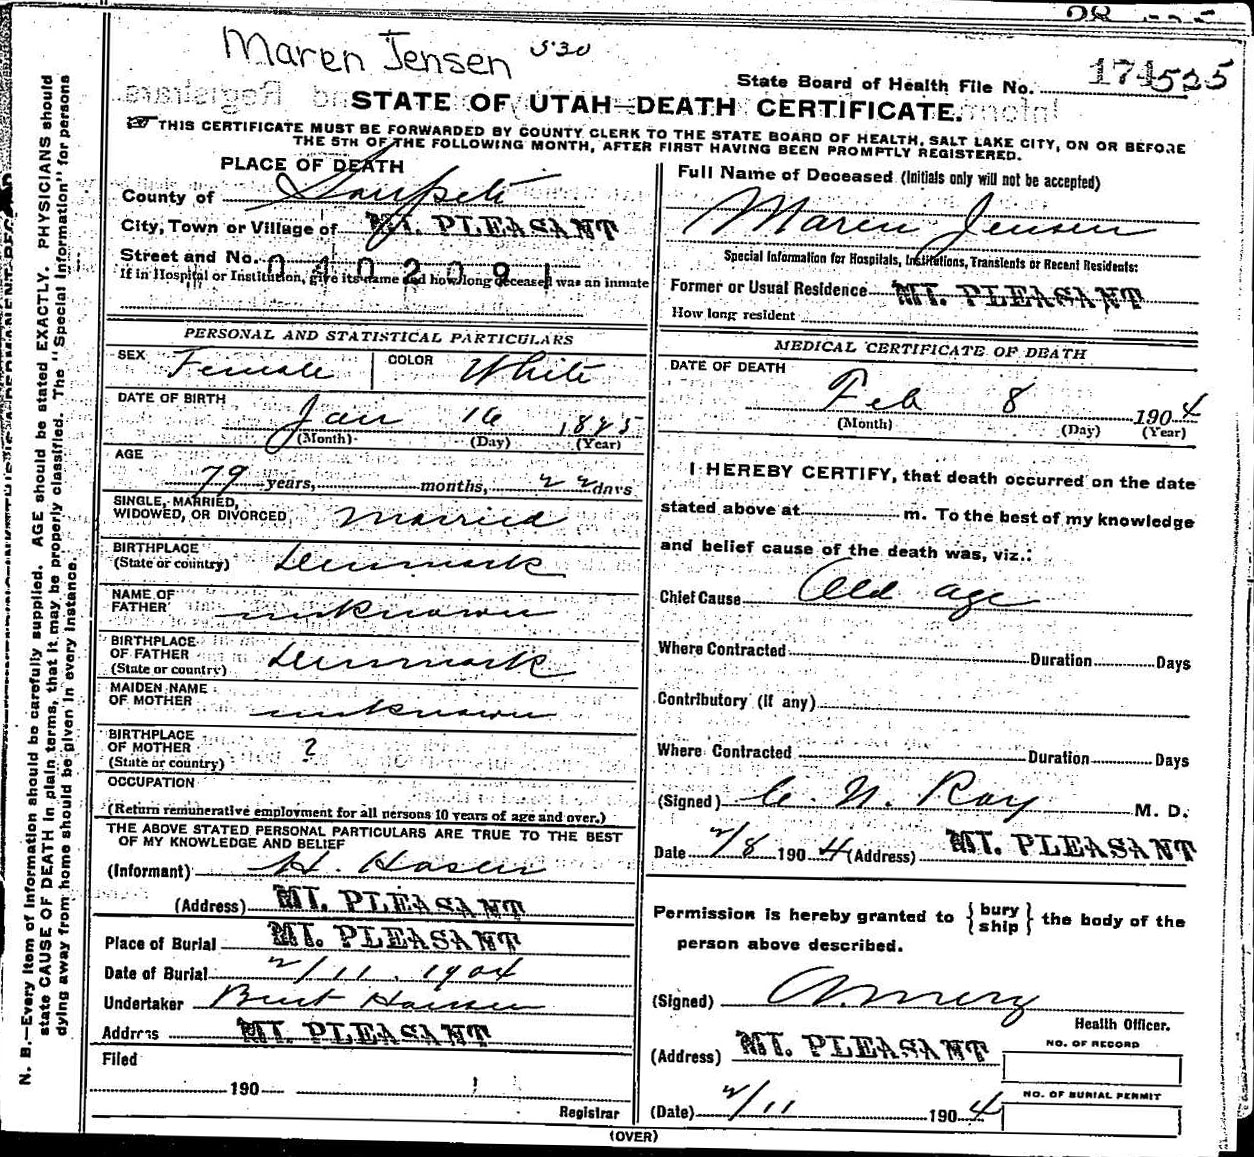 Maren Jensen 530
State Board of Health File No. 174535
STATE OF UTAH—DEATH CERTIFICATE.
THIS CERTIFICATE MUST BE FORWARDED BY COUNTY CLERK TO THE STATE BOARD OF HEALTH, SALT LAKE CITY, ON OR BEFORE
THE 5TH OF THE FOLLOWING MONTH, AFTER FIRST HAVING BEEN PROMPTLY REGISTERED.
PLACE OF DEATH
County of Sanpete
City, Town or Village of MT. PLEASANT
Street and No. 0402091
If in Hospital or Institution, give its name and how long deceased was an inmate
PERSONAL AND STATISTICAL PARTICULARS
SEX Female COLOR White
DATE OF BIRTH
Jan 16 1825
(Month) (Day) (Year)
AGE
79 years, months, 22 days
SINGLE, MARRIED,
WIDOWED, OR DIVORCED Married
BIRTHPLACE
(State or country) Denmark
NAME OF
FATHER unknown
BIRTHPLACE
OF FATHER
(State or country) Denmark
MAIDEN NAME
OF MOTHER unknown
BIRTHPLACE
OF MOTHER ?
(State or country)
OCCUPATION
(Return remunerative employment for all persons 10 years of age and over.)
THE ABOVE STATED PERSONAL PARTICULARS ARE TRUE TO THE BEST
OF MY KNOWLEDGE AND BELIEF
(Informant) H. Hasen
(Address) MT. PLEASANT
Place of Burial MT. PLEASANT
Date of Burial 2/11. 1904
Undertaker Bent Hansen
Address MT. PLEASANT
Filed
190
Registrar
Full Name of Deceased (Initials only will not be accepted)
Maren Jensen
Special Information for Hospitals, Institutions, Transients or Recent Residents:
Former or Usual Residence MT. PLEASANT
How long resident
MEDICAL CERTIFICATE OF DEATH
DATE OF DEATH
Feb 8 1904
(Month) (Day) (Year)
I HEREBY CERTIFY, that death occurred on the date
stated above at m. To the best of my knowledge
and belief cause of the death was, viz.:
Chief Cause Old age
Where Contracted Duration Days
Contributory (if any)
Where Contracted Duration Days
(Signed) C. N. Ray M. D.
Date 2/8 1904 (Address) MT. PLEASANT
Permission is hereby granted to { bury
ship } the body of the
person above described.
(Signed)
Health Officer.
(Address) MT. PLEASANT
NO. OF RECORD
NO. OF BURIAL PERMIT
(Date) 2/11 1904
(OVER)
N. B.—Every item of information should be carefully supplied. AGE should be stated EXACTLY. PHYSICIANS should
state CAUSE OF DEATH in plain terms, that it may be properly classified. The "Special Information" for persons
dying away from home should be given in every instance.